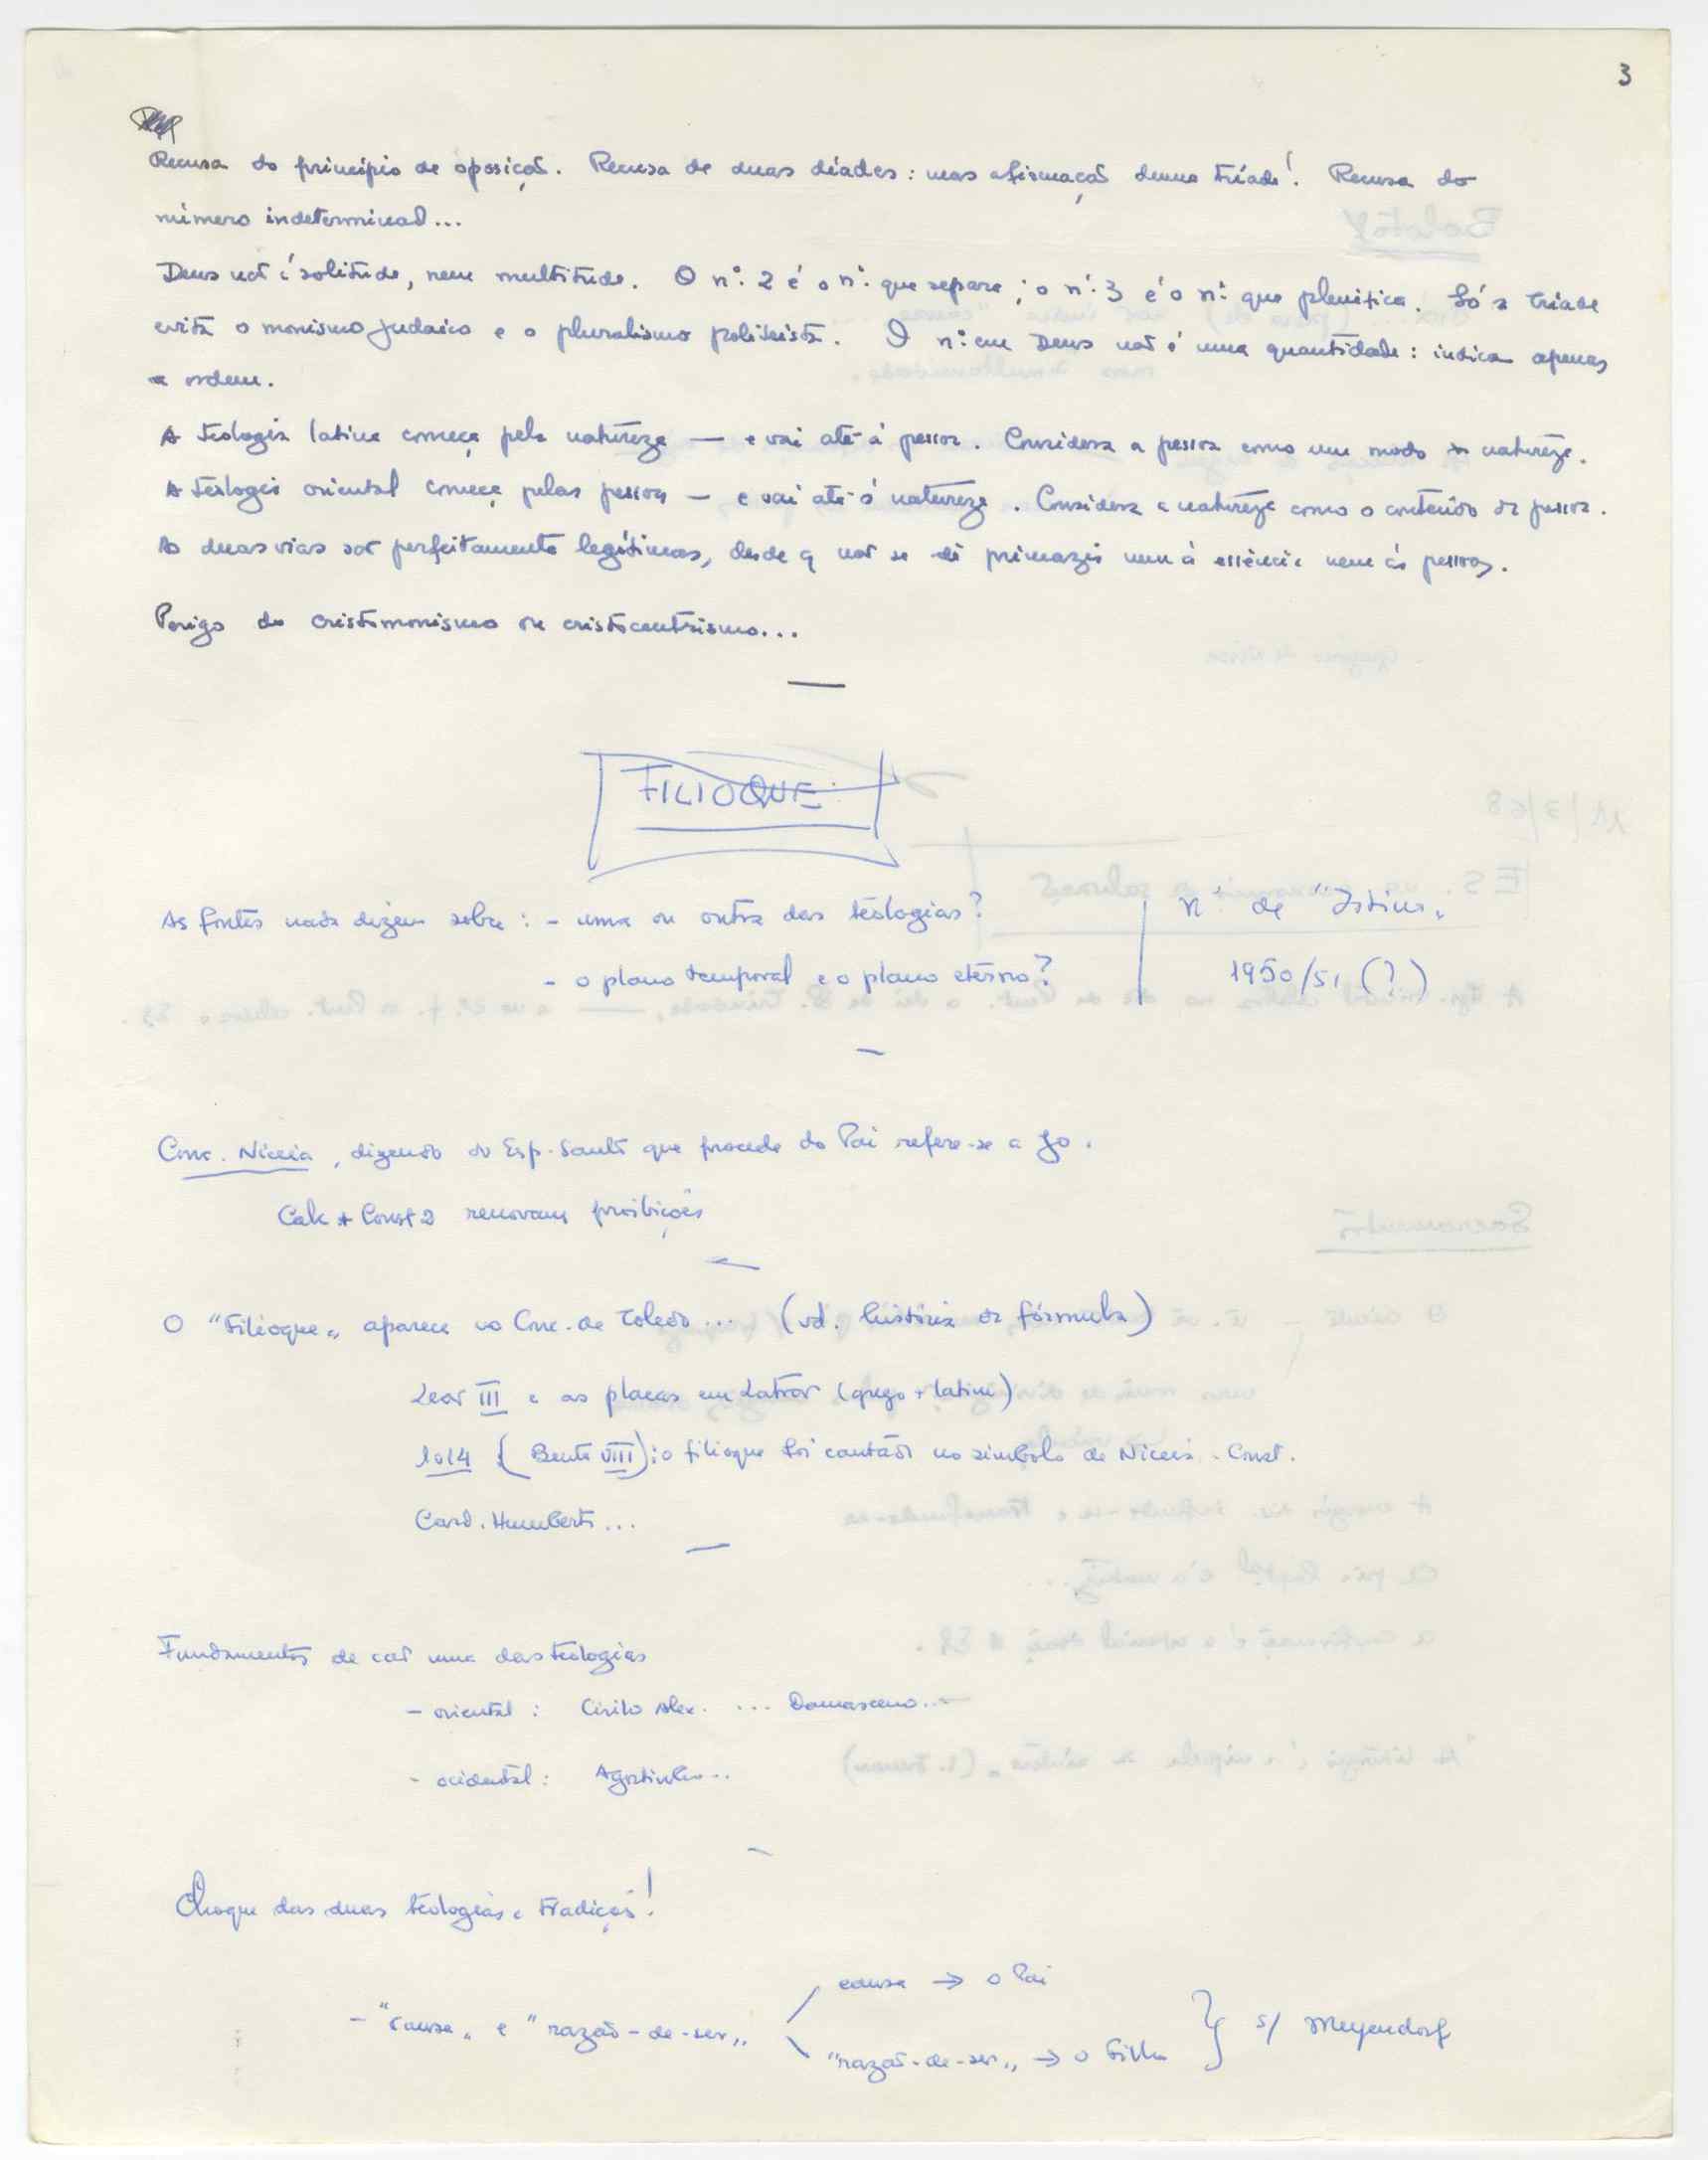 3
Recusa do princípio de oposição. Recusa de duas díades: mas afirmação duma tríade! Recusa do
número indeterminado...
Deus não é solitude, nem multitude. O nº. 2 é o nº. que separa; o nº. 3 é o nº. que plenifica. Só a tríade
evita o monismo judaico e o pluralismo politeista. O nº. em Deus não é uma quantidade: indica apenas
a ordem.
A teologia latina começa pela natureza — e vai até à pessoa. Considera a pessoa como um modo da natureza.
A teologia oriental começa pelas pessoas — e vai até à natureza. Considera a natureza como o conteúdo da pessoa.
As duas vias são perfeitamente legítimas, desde q não se dê primazia nem à essência nem às pessoas.
Perigo do cristomonismo ou cristocentrismo...
FILIOQUE
As fontes nada dizem sobre: - uma ou outra das teologias?
- o plano temporal e o plano eterno?
nº de "Istina"
1950/51 (?)
Conc. Niceia, dizendo do Esp. Santo que procede do Pai refere-se a Jo.
Calc + Const 2 renovam proibições
O "Filioque" aparece no Conc. de Toledo... (vd. história da fórmula)
Leão III e as placas em Latrão (grego + latim)
1014 (Bento VIII): o filioque foi cantado no símbolo de Niceia - Const.
Card. Humberto...
Fundamentos de cada uma das teologias
- oriental: Cirilo Alex. ... Damasceno...
- ocidental: Agostinho...
Choque das duas teologias e tradições!
- "causa" e "razão-de-ser"
causa → o Pai
"razão-de-ser" → o Filho
} s/ Meyendorf